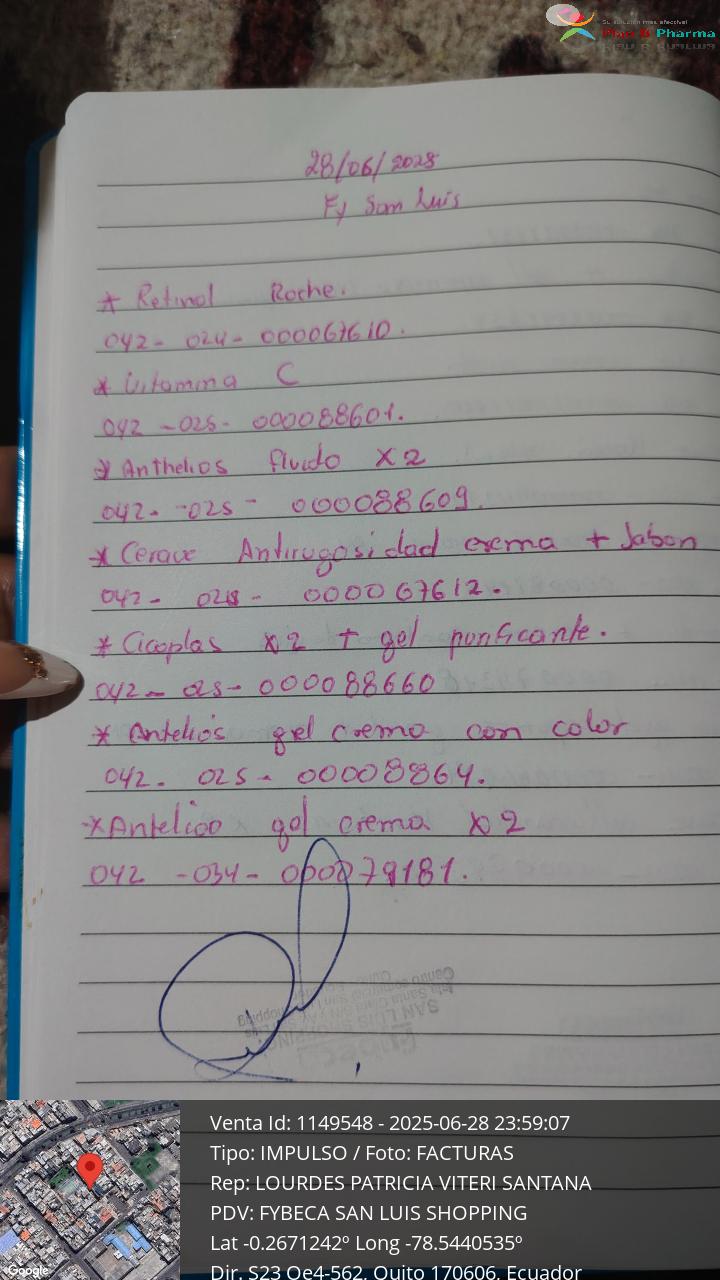 Su solución más efectiva!
Plan B Pharma
28/06/2025
Fy San Luis
* Retinol Roche.
042- 024- 000067610.
* Vitamina C
042 -025- 000088601.
* Anthelios fluido X2
042- -025 - 000088609.
* Cerave Antirugosidad crema + Jabon
042- 024- 000067612.
* Cicaplas x2 + gel purificante.
042- 025- 000088660
* Antelios gel crema con color
042. 025 - 00008864.
* Antelios gel crema x2
042 -034- 000079181.
SAN LUIS SHOPPING
Venta Id: 1149548 - 2025-06-28 23:59:07
Tipo: IMPULSO / Foto: FACTURAS
Rep: LOURDES PATRICIA VITERI SANTANA
PDV: FYBECA SAN LUIS SHOPPING
Lat -0.2671242º Long -78.5440535º
Dir. S23 Oe4-562, Quito 170606, Ecuador
Google